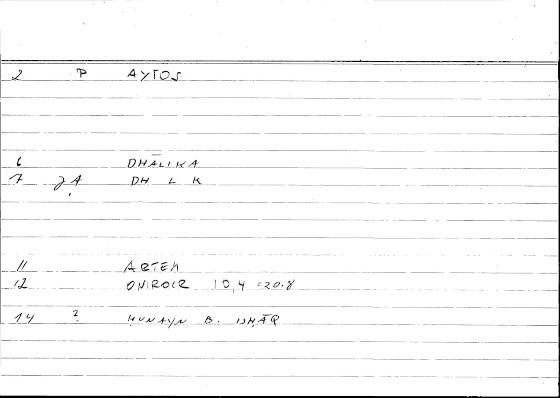 2 P AYTOS
6 DHĀLIKA
7 JA DH L K
11 ARTEM
12 ONIROCR 10,4 = 20.8
14 ? ḤUNAYN B. ISḤĀQ